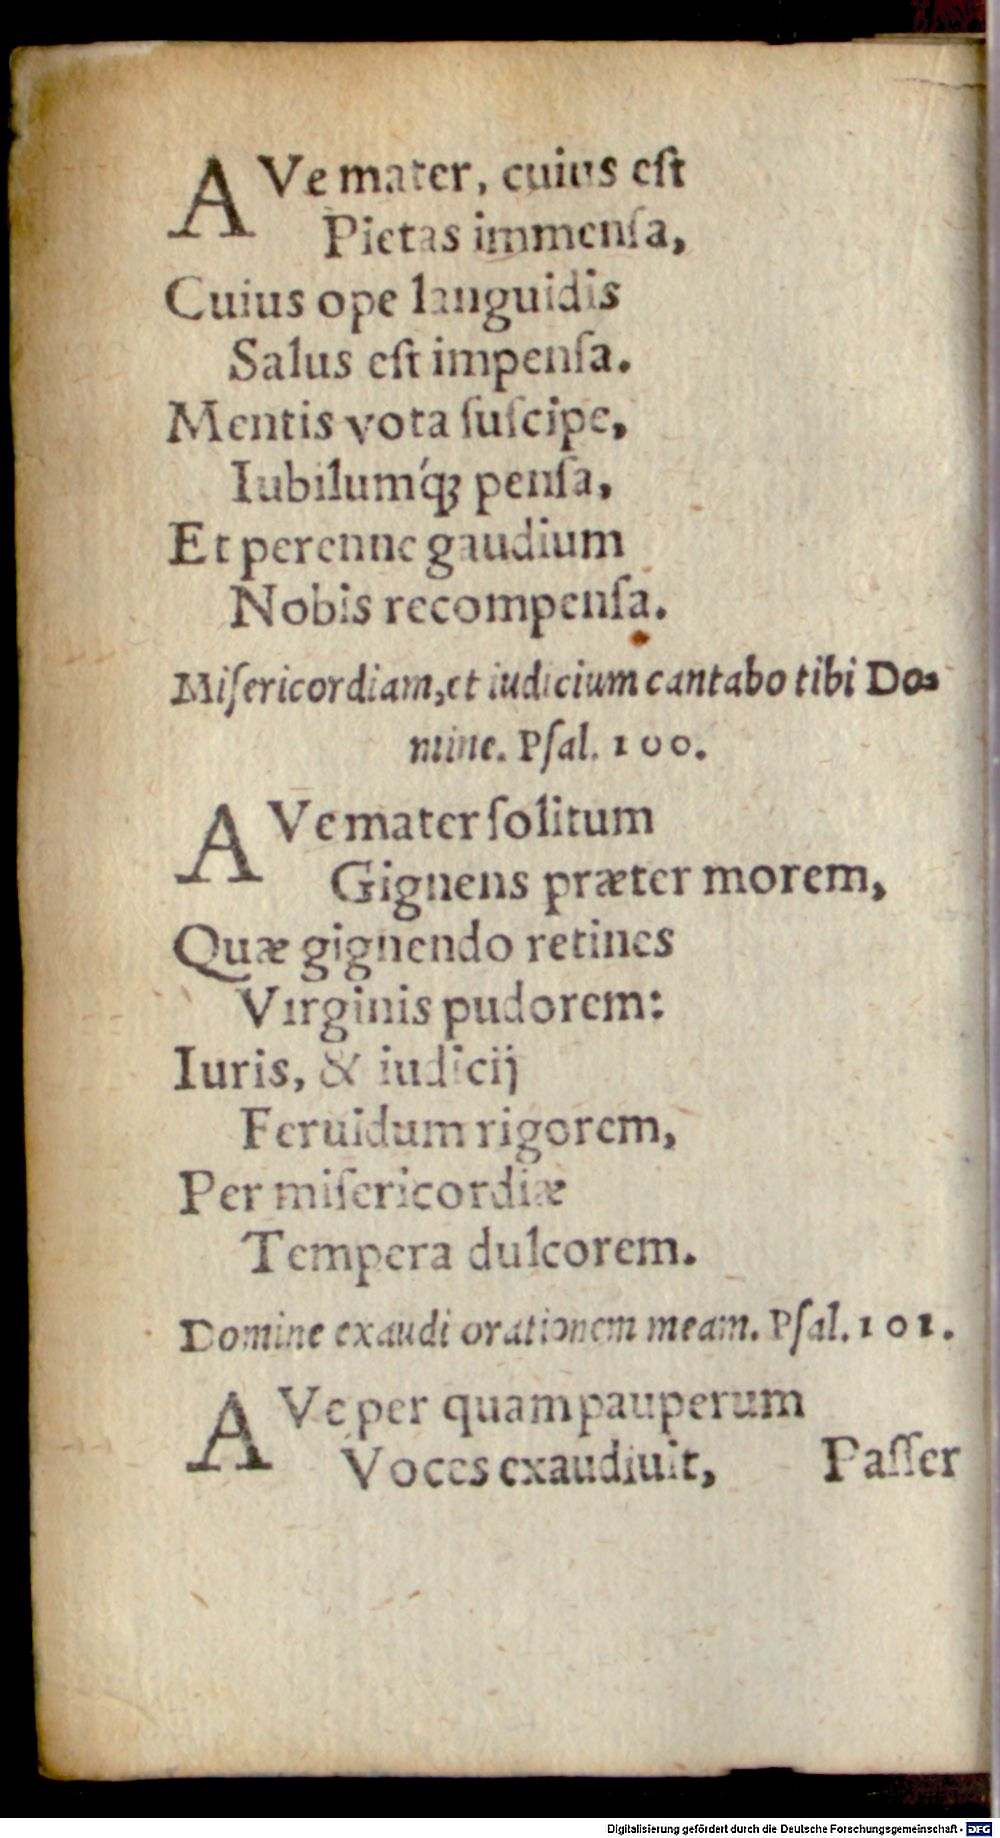 AVe mater, cuius eſt
Pietas immenſa,
Cuius ope languidis
Salus eſt impenſa.
Mentis vota ſuſcipe,
Iubilumq́ꝫ penſa,
Et perenne gaudium
Nobis recompenſa.
Miſericordiam, et iudicium cantabo tibi Do-
mine. Pſal. 100.
AVe mater ſolitum
Gignens præter morem,
Quæ gignendo retines
Virginis pudorem:
Iuris, & iudicij
Feruidum rigorem,
Per miſericordiæ
Tempera dulcorem.
Domine exaudi orationem meam. Pſal. 101.
AVe per quam pauperum
Voces exaudiuit,
Paſſer
Digitalisierung gefördert durch die Deutsche Forschungsgemeinschaft - DFG